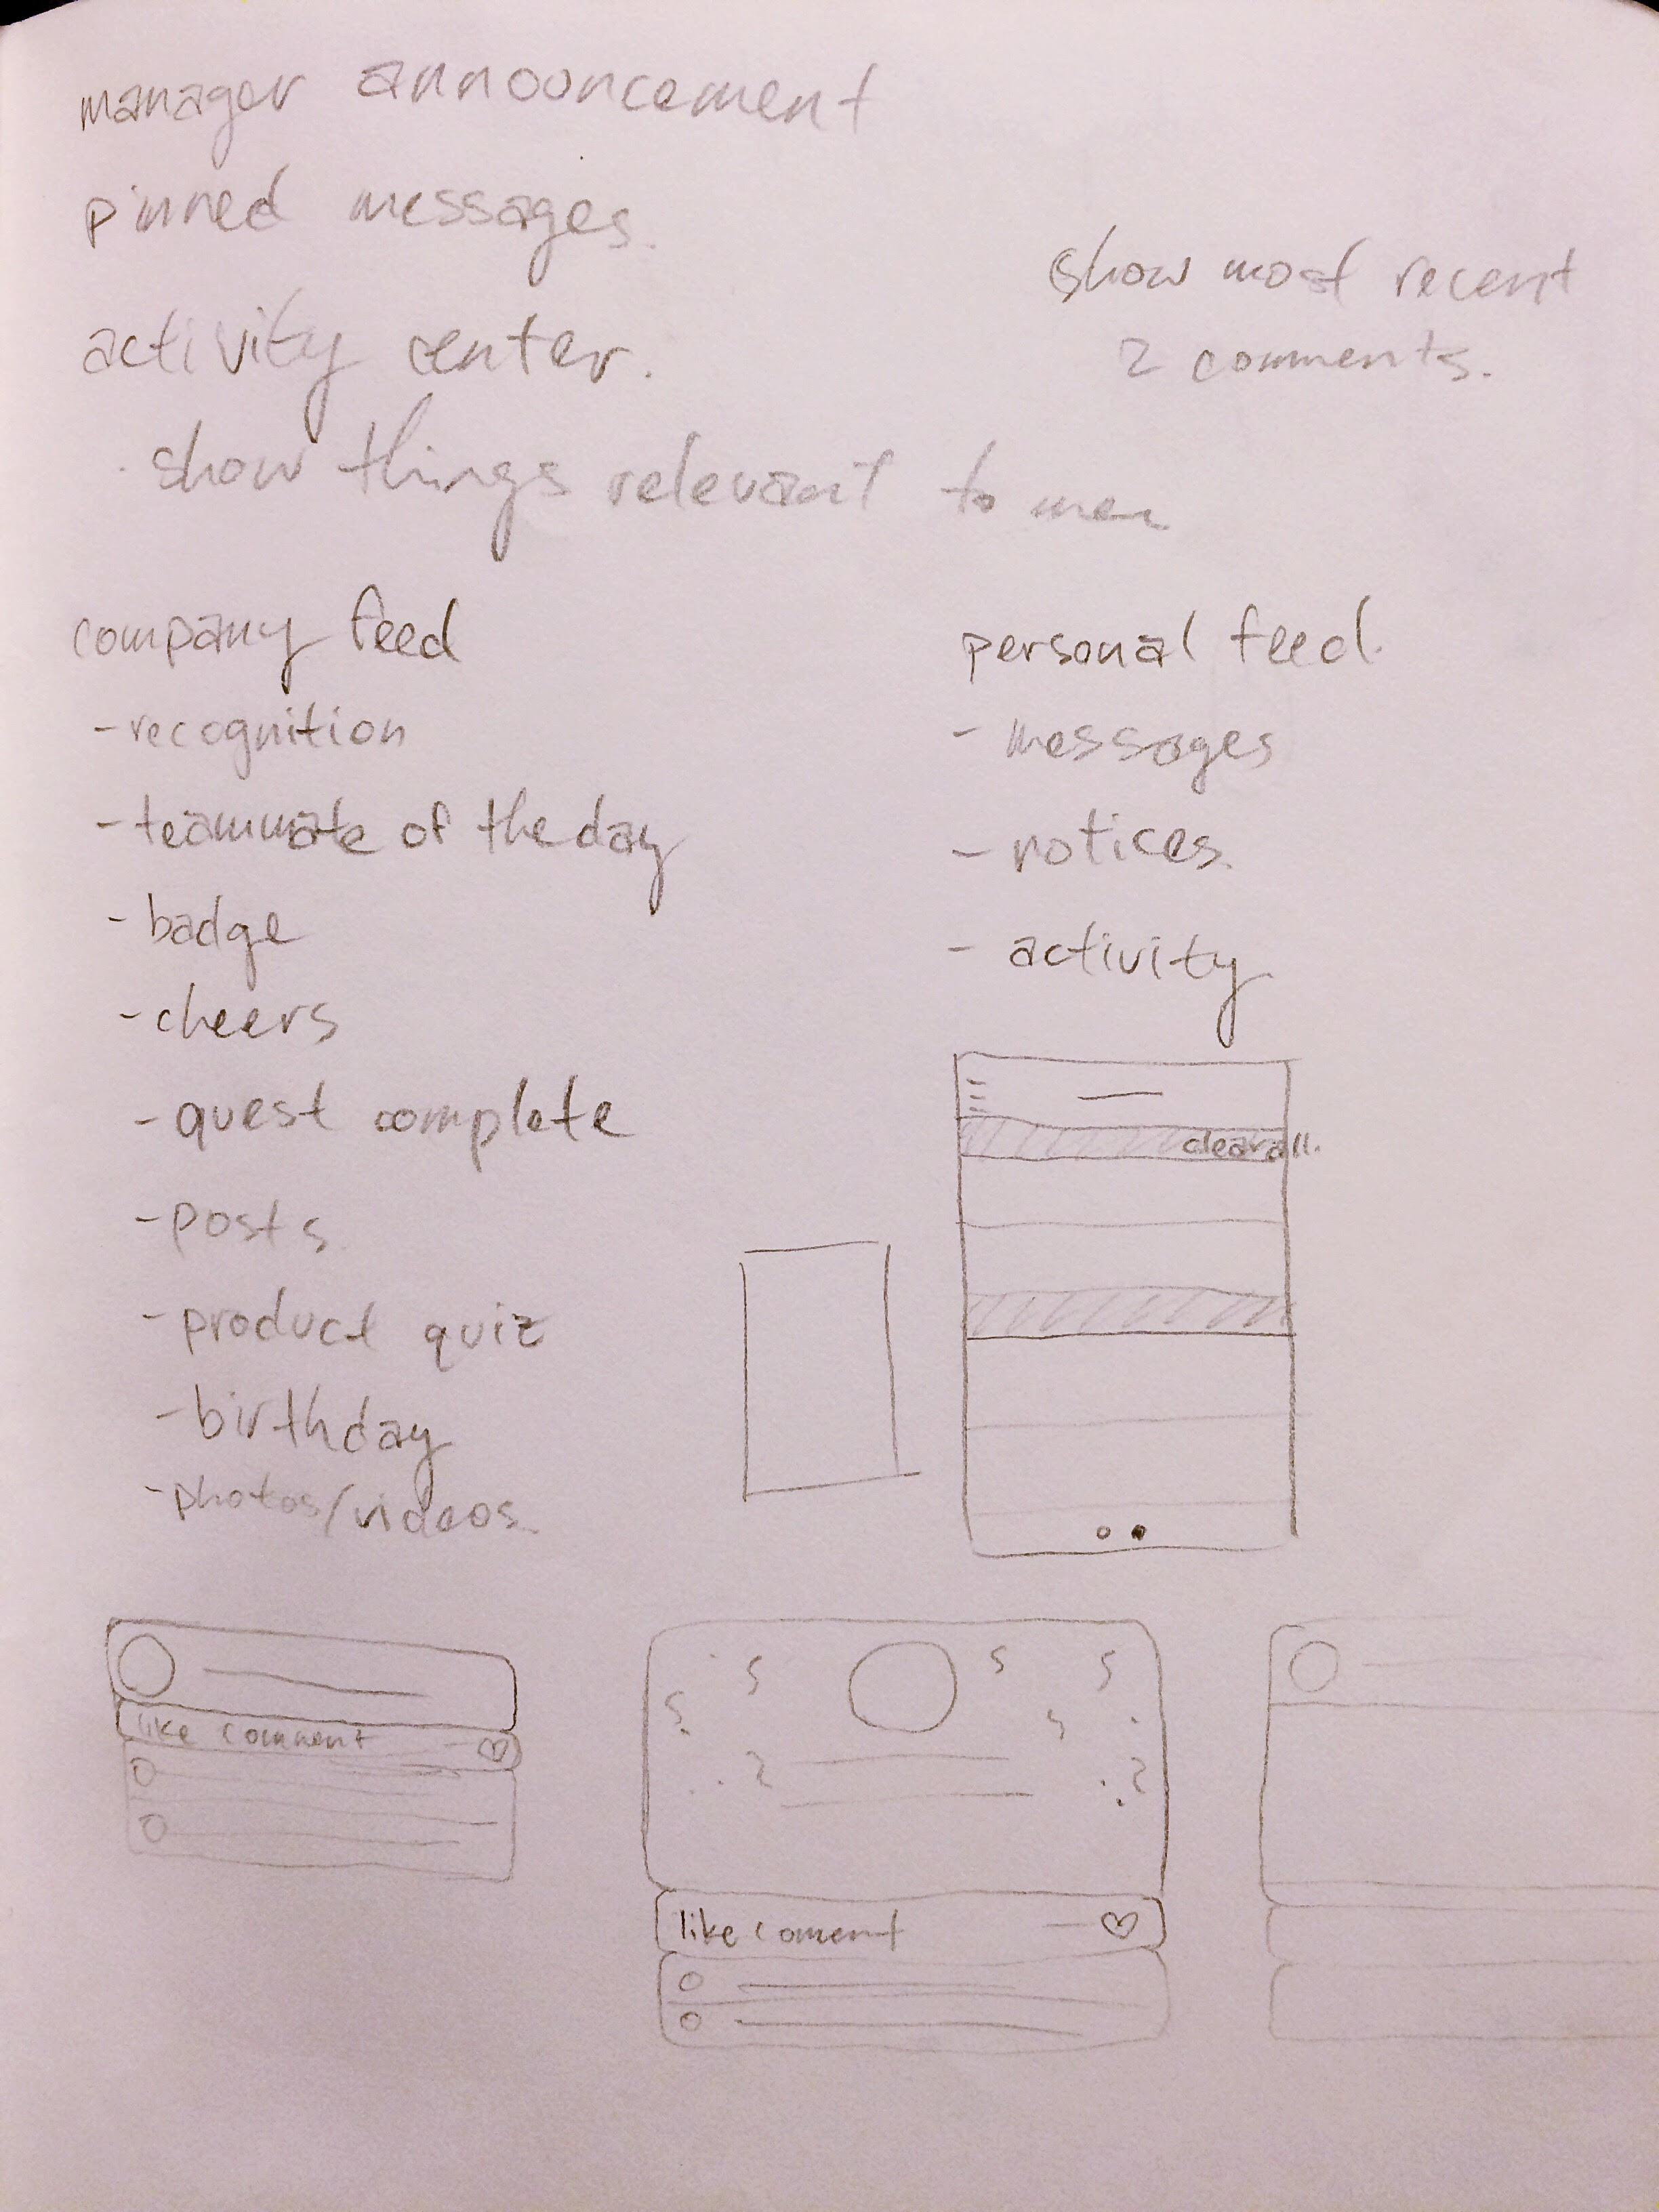 manager announcement
pinned messages.
show most recent
2 comments.
activity center.
· show things relevant to me
company feed
- recognition
- teammate of the day
- badge
- cheers
- quest complete
- posts
- product quiz
- birthday
- photos/videos.
personal feed.
- messages
- notices.
- activity
clear all.
like comment
like coment